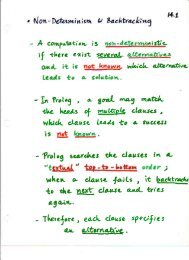 14.1
• Non-Determinism & Backtracking
- A computation is non-deterministic
if there exist several alternatives
and it is not known which alternative
leads to a solution.
- In Prolog, a goal may match
the heads of multiple clauses,
which clause leads to a success
is not known.
- Prolog searches the clauses in a
"textual" top-to-bottom order;
when a clause fails, it backtracks
to the next clause and tries
again.
- Therefore, each clause specifies
an alternative.